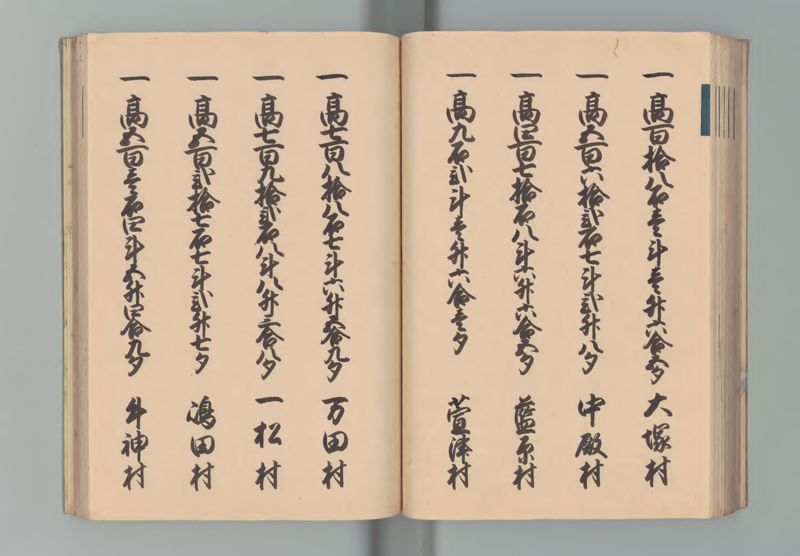 一 高百拾八石壱斗壱升六合五夕 大塚村
一 高五百六拾弐石七斗弐升八夕 中殿村
一 高四百七拾石八斗六升六合五夕 藍原村
一 高九石弐斗壱升六合壱夕 萱津村
一 高七百八拾八石七斗六升五合九夕 万田村
一 高七百九拾弐石八斗八升三合八夕 一松村
一 高五百弐拾七石七斗弐升七夕 嶋田村
一 高五百壱石四斗五升四合九夕 牛神村